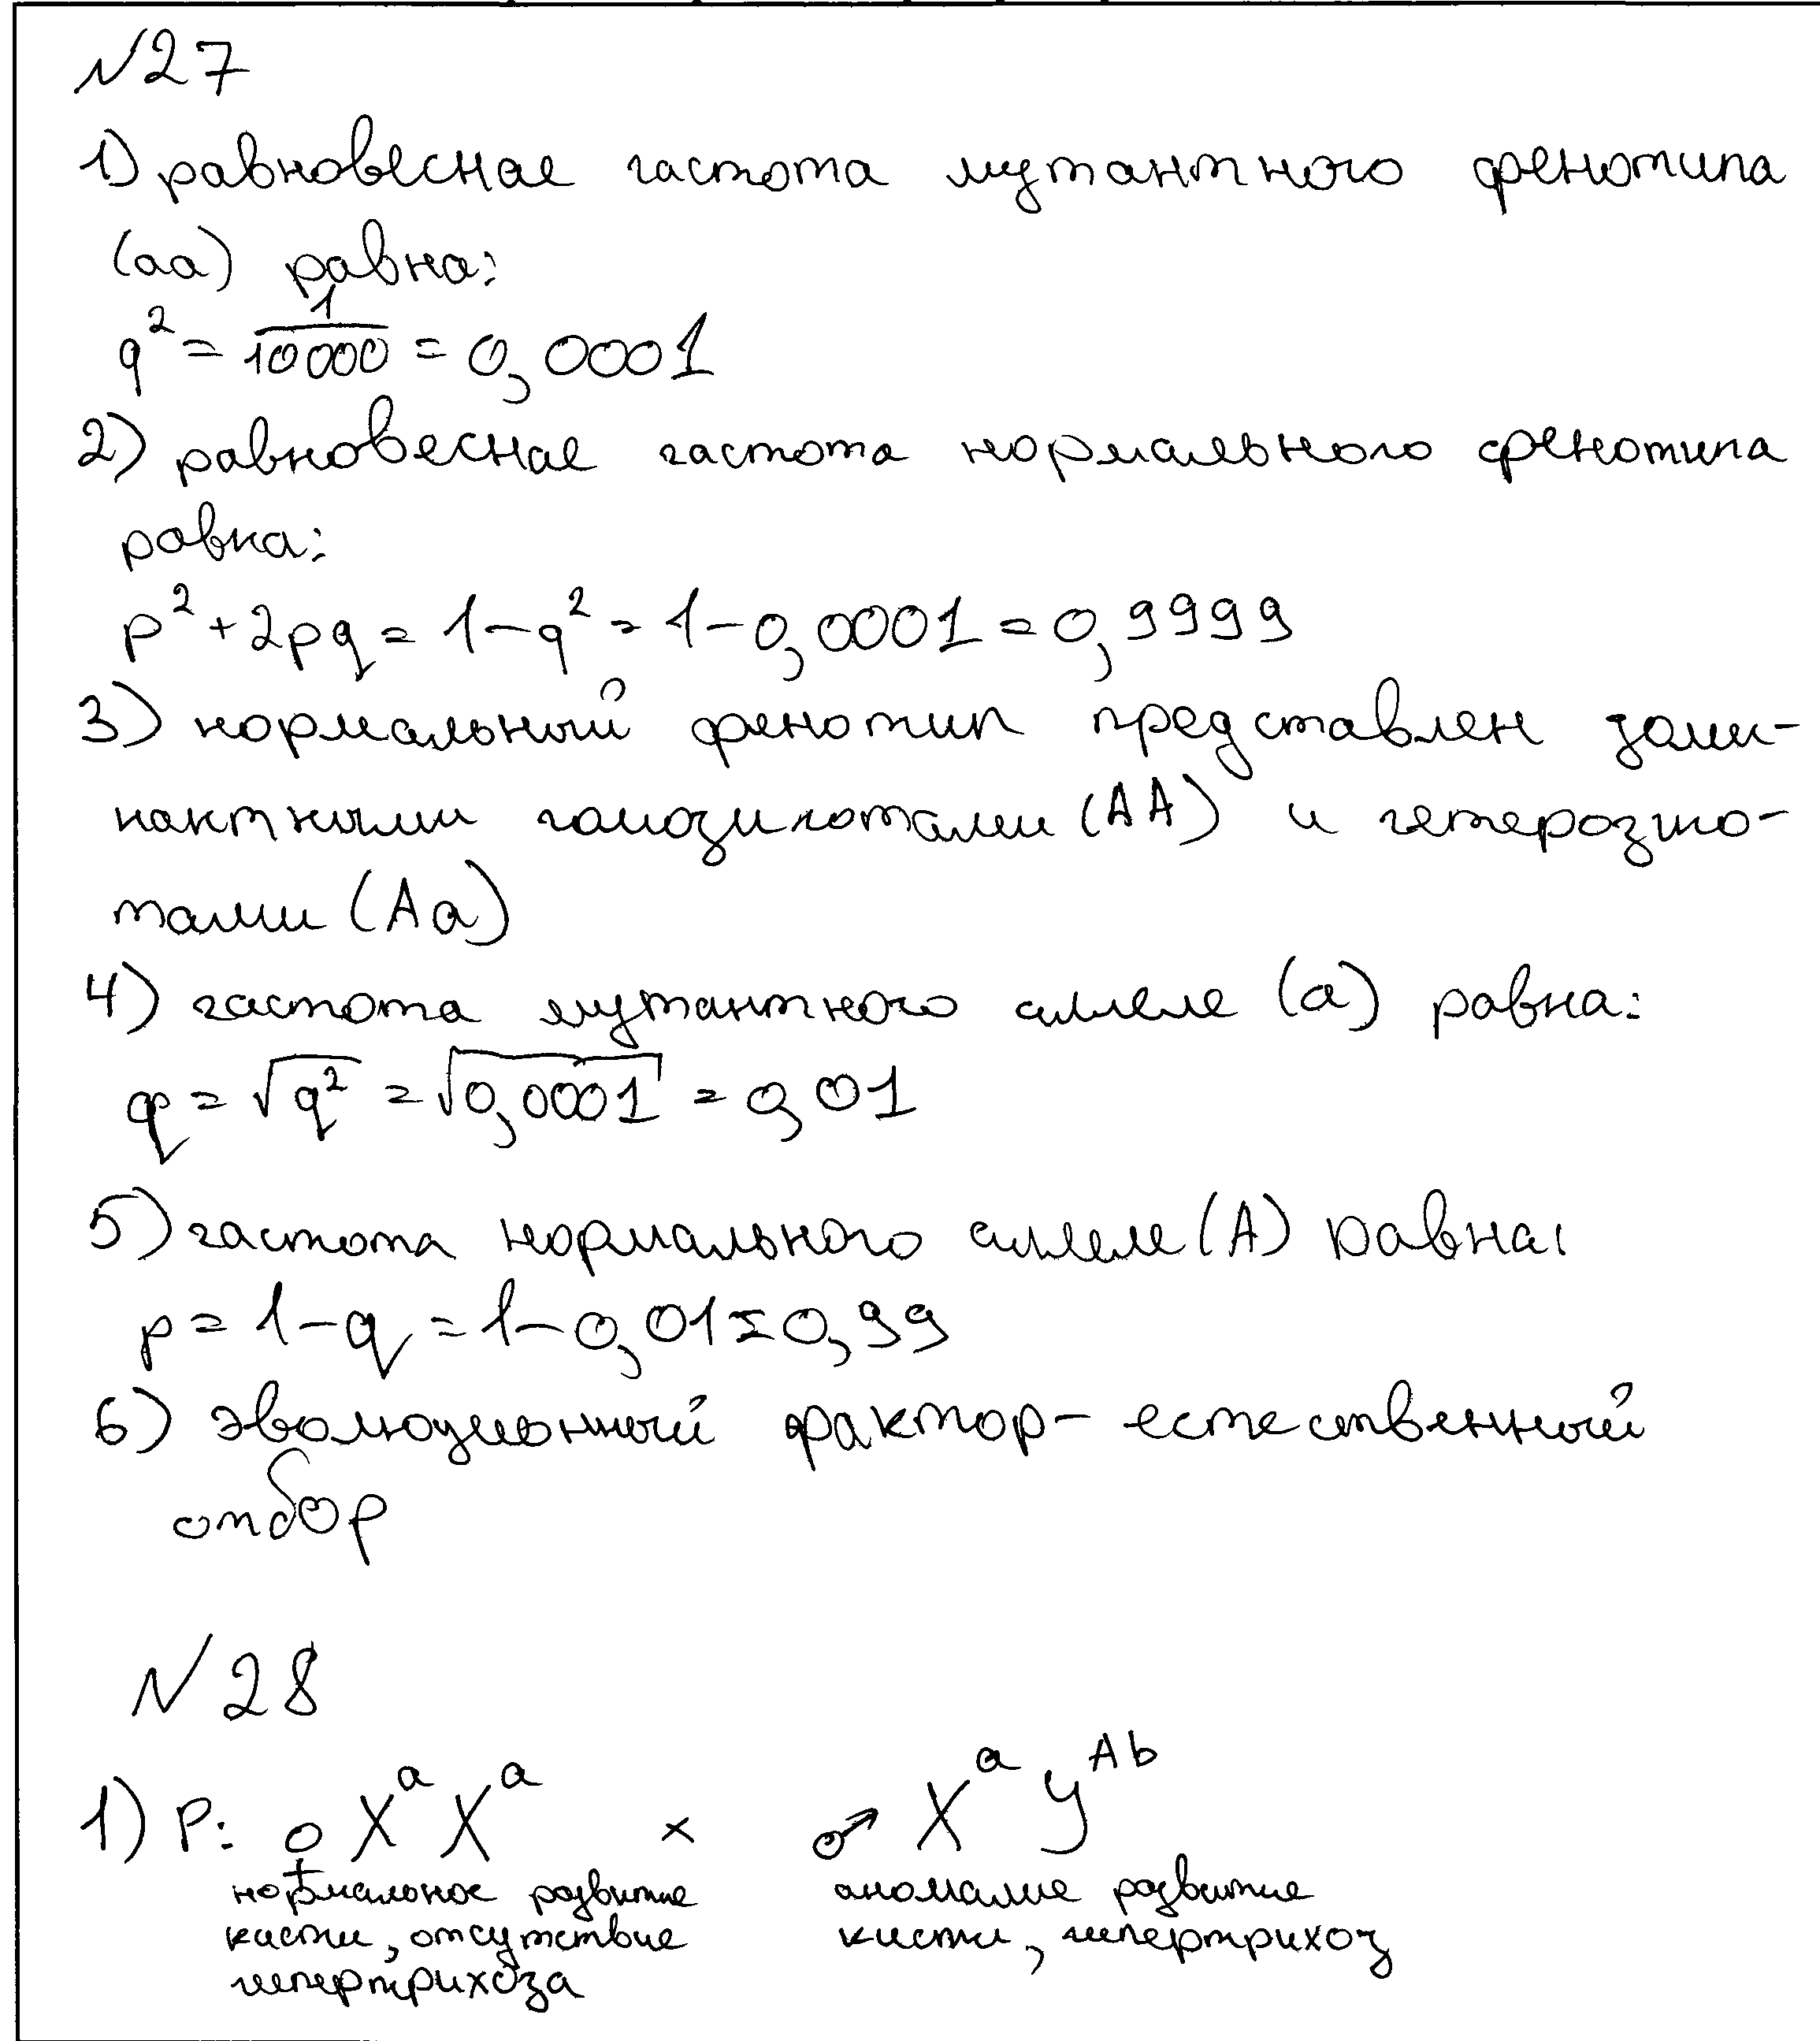 №27
1) равновесная частота мутантного фенотипа
(аа) равна:
q² = 1/10000 = 0,0001
2) равновесная частота нормального фенотипа
равна:
p² + 2pq = 1 - q² = 1 - 0,0001 = 0,9999
3) нормальный фенотип представлен доми-
нантными гомозиготами (АА) и гетерозиго-
тами (Аа)
4) частота мутантного аллеля (а) равна:
q = √q² = √0,0001 = 0,01
5) частота нормального аллеля (А) равна:
p = 1 - q = 1 - 0,01 = 0,99
6) эволюционный фактор - естественный
отбор
№28
1) P: ♀ XᵃXᵃ × ♂ XᵃYᴬᵇ
нормальное развитие аномалия развития
кисти, отсутствие кисти, гипертрихоз
гипертрихоза